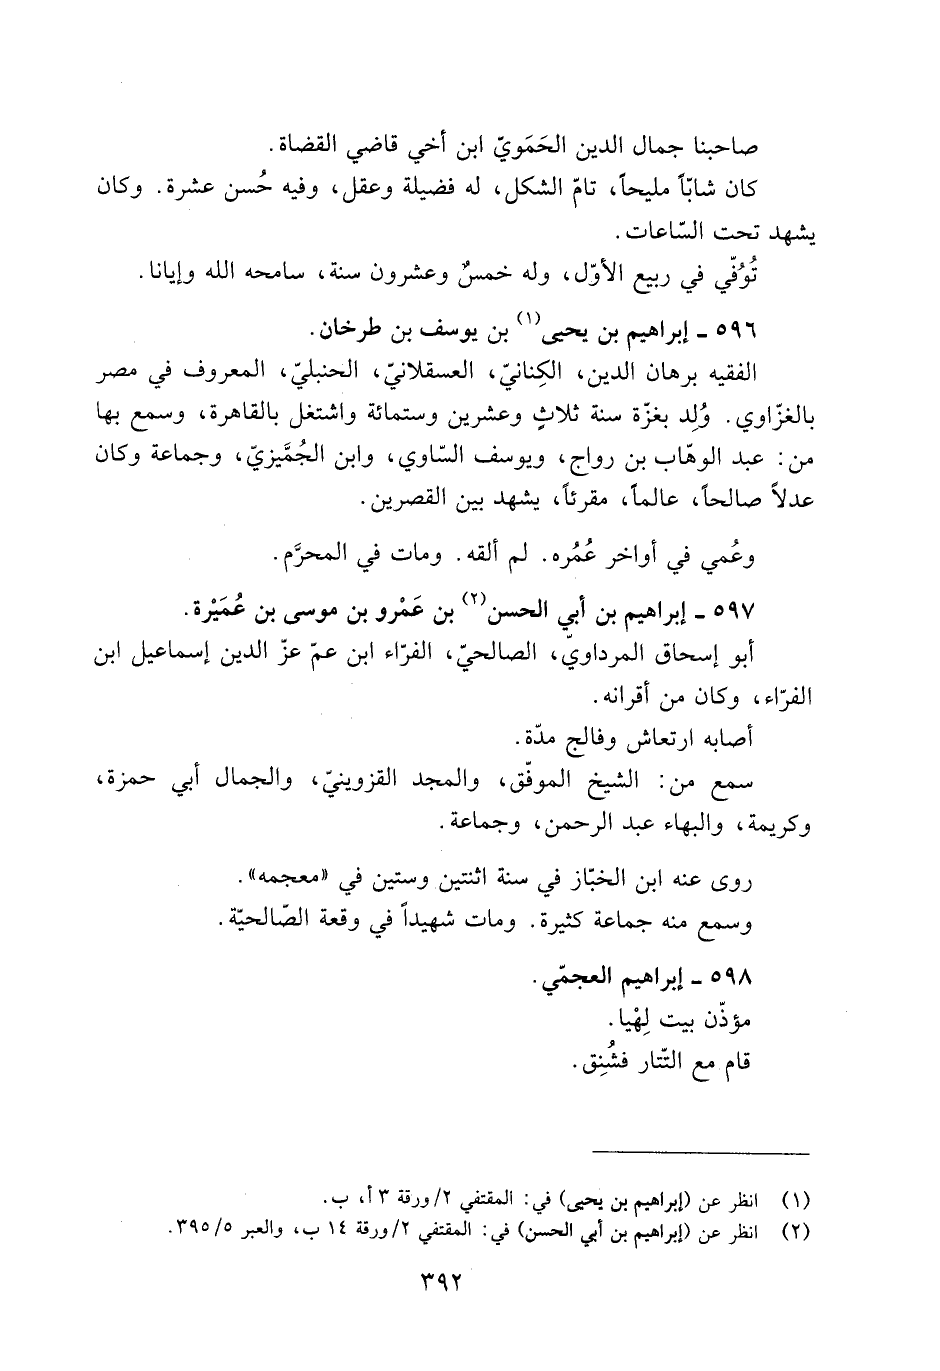 صاحبنا جمال الدين الحَمَويّ ابن أخي قاضي القضاة.
كان شابّاً مليحاً، تامّ الشكل، له فضيلة وعقل، وفيه حُسن عشرة. وكان
يشهد تحت السّاعات.
تُوُفّي في ربيع الأوّل، وله خمسٌ وعشرون سنة، سامحه الله وإيانا.
٥٩٦ ـ إبراهيم بن يحيى(١) بن يوسف بن طرخان.
الفقيه برهان الدين، الكِنانيّ، العسقلانيّ، الحنبليّ، المعروف في مصر
بالغزّاوي. وُلِد بغزّة سنة ثلاثٍ وعشرين وستمائة واشتغل بالقاهرة، وسمع بها
من: عبد الوهّاب بن رواج، ويوسف السّاوي، وابن الجُمَّيزيّ، وجماعة وكان
عدلاً صالحاً، عالماً، مقرئاً، يشهد بين القصرين.
وعُمي في أواخر عُمُره. لم ألقه. ومات في المحرَّم.
٥٩٧ ـ إبراهيم بن أبي الحسن(٢) بن عَمْرو بن موسى بن عُمَيْرة.
أبو إسحاق المرداويّ، الصالحيّ، الفرّاء ابن عمّ عزّ الدين إسماعيل ابن
الفرّاء، وكان من أقرانه.
أصابه ارتعاش وفالج مدّة.
سمع من: الشيخ الموفّق، والمجد القزوينيّ، والجمال أبي حمزة،
وكريمة، والبهاء عبد الرحمن، وجماعة.
روى عنه ابن الخبّاز في سنة اثنتين وستين في «معجمه».
وسمع منه جماعة كثيرة. ومات شهيداً في وقعة الصّالحيّة.
٥٩٨ ـ إبراهيم العجمّي.
مؤذّن بيت لِهْيا.
قام مع التّتار فشُنِق.
(١) انظر عن (إبراهيم بن يحيى) في: المقتفي ٢/ورقة ٣ أ، ب.
(٢) انظر عن (إبراهيم بن أبي الحسن) في: المقتفي ٢/ورقة ١٤ ب، والعبر ٣٩٥/٥.
٣٩٢